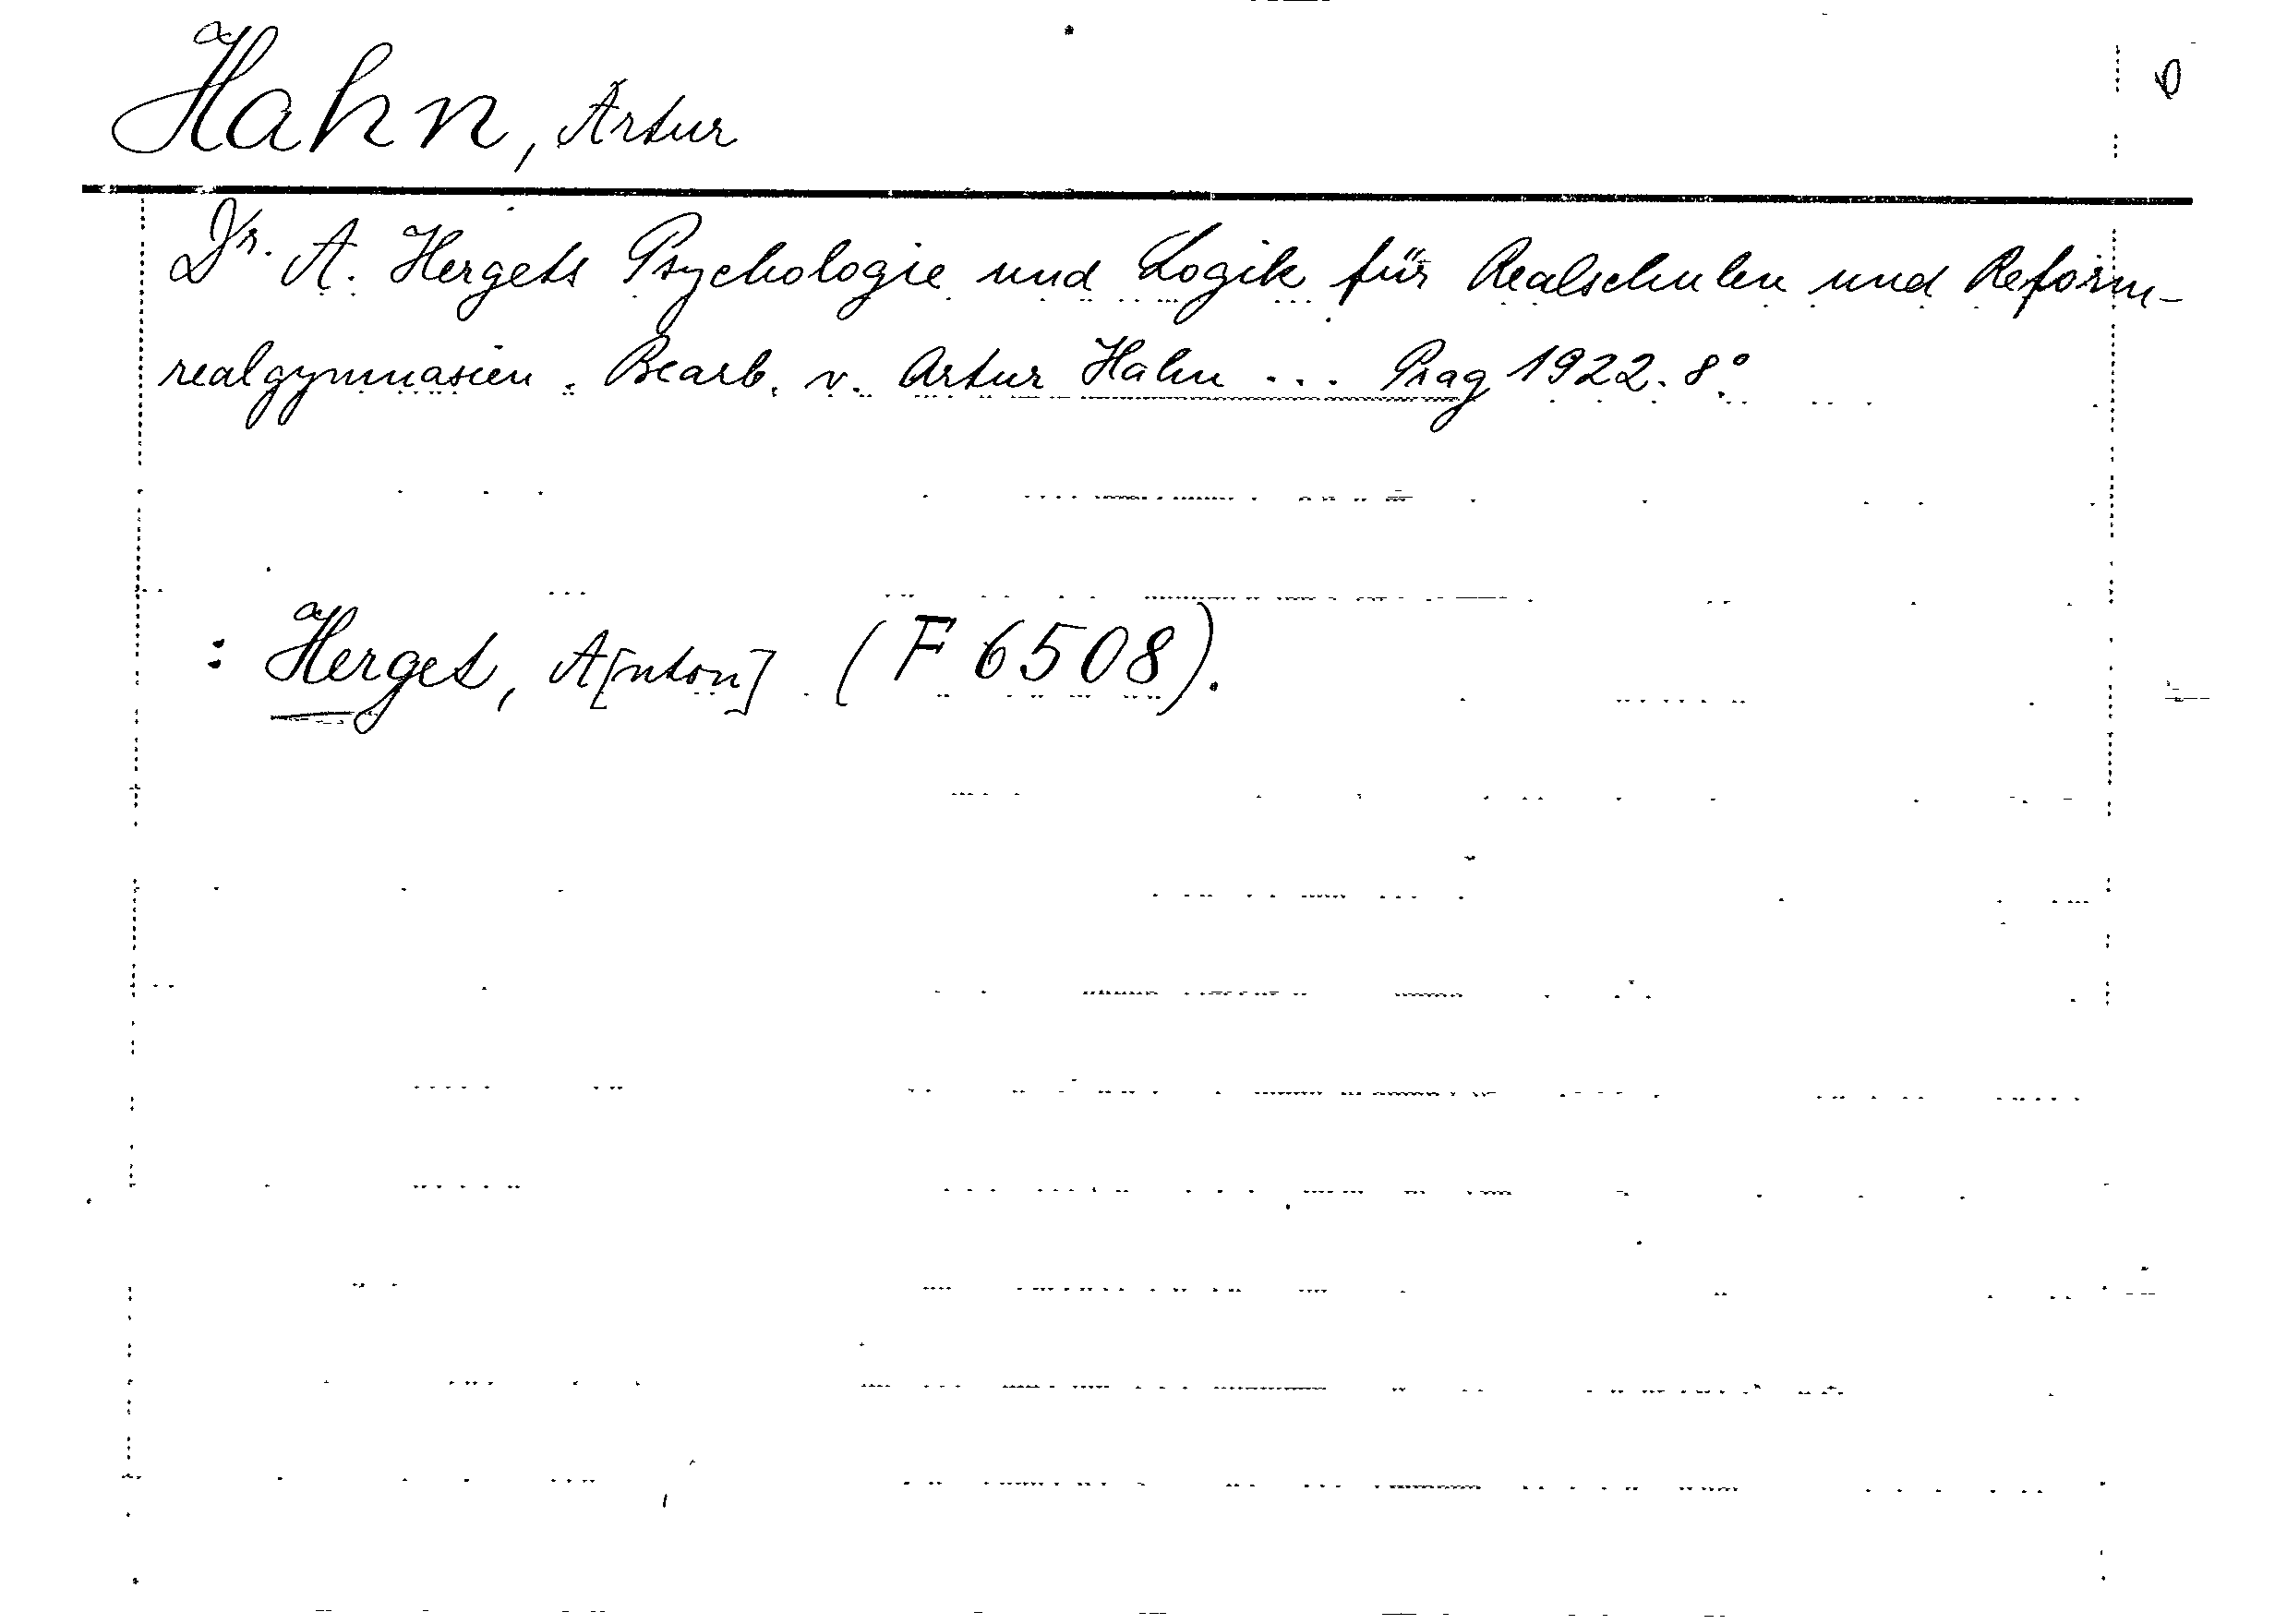 Hahn, Artur
Dr. A. Hergets Psychologie und Logik für Realschulen und Reform-
realgymnasien. Bearb. v. Artur Hahn ... Prag 1922. 8°.
: Herget, A[nton] (F 6508).